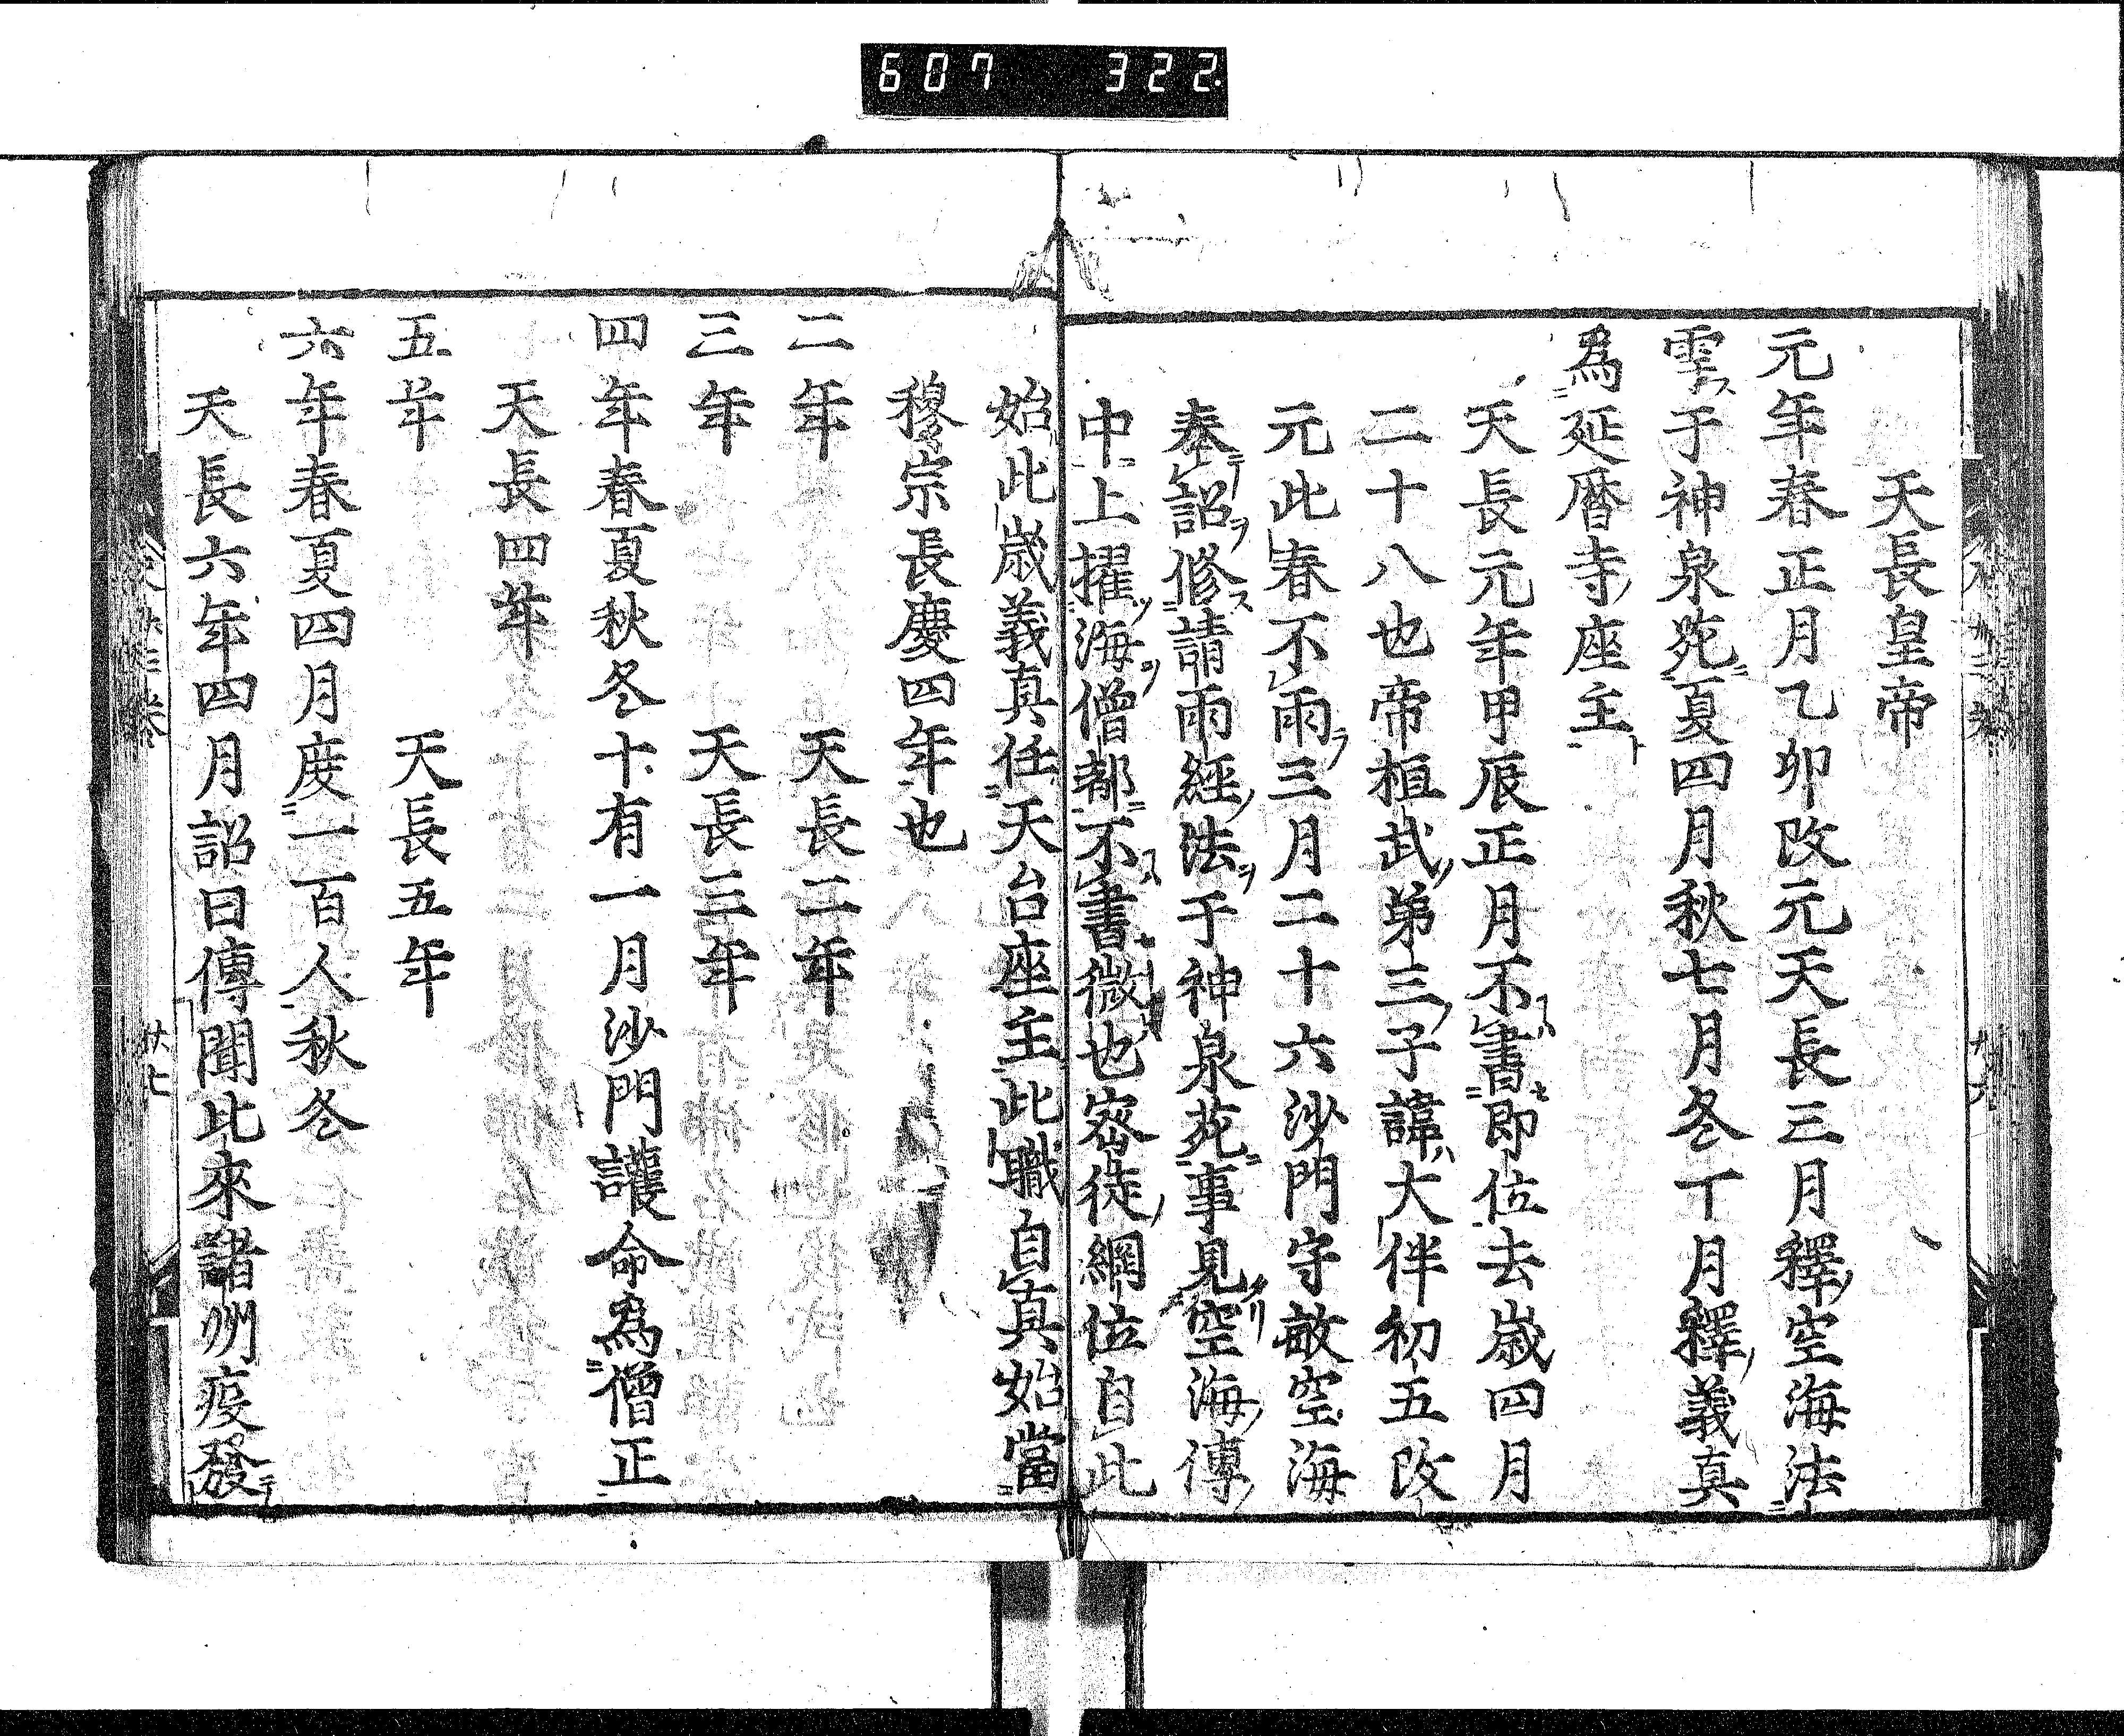 607 322
天長皇帝
元年春正月乙卯改元天長三月釋空海法
雩于神泉苑夏四月秋七月冬丁月釋義真
為延暦寺座主
天長元年甲辰正月不書即位去歳四月
二十八也帝桓武第三子諱大伴初五改
元此春不雨三月二十六沙門守敏空海
奉詔修請雨經法于神泉苑事見空海傳
中上擢海僧都不書微也密徒綱位自此
始此歳義真任天台座主此職自真始當
穆宗長慶四年也
二年 天長二年
三年 天長三年
四年春夏秋冬十有一月沙門護命為僧正
天長四年
五年 天長五年
六年春夏四月度一百人秋冬
天長六年四月詔曰傳聞比來諸州疫發